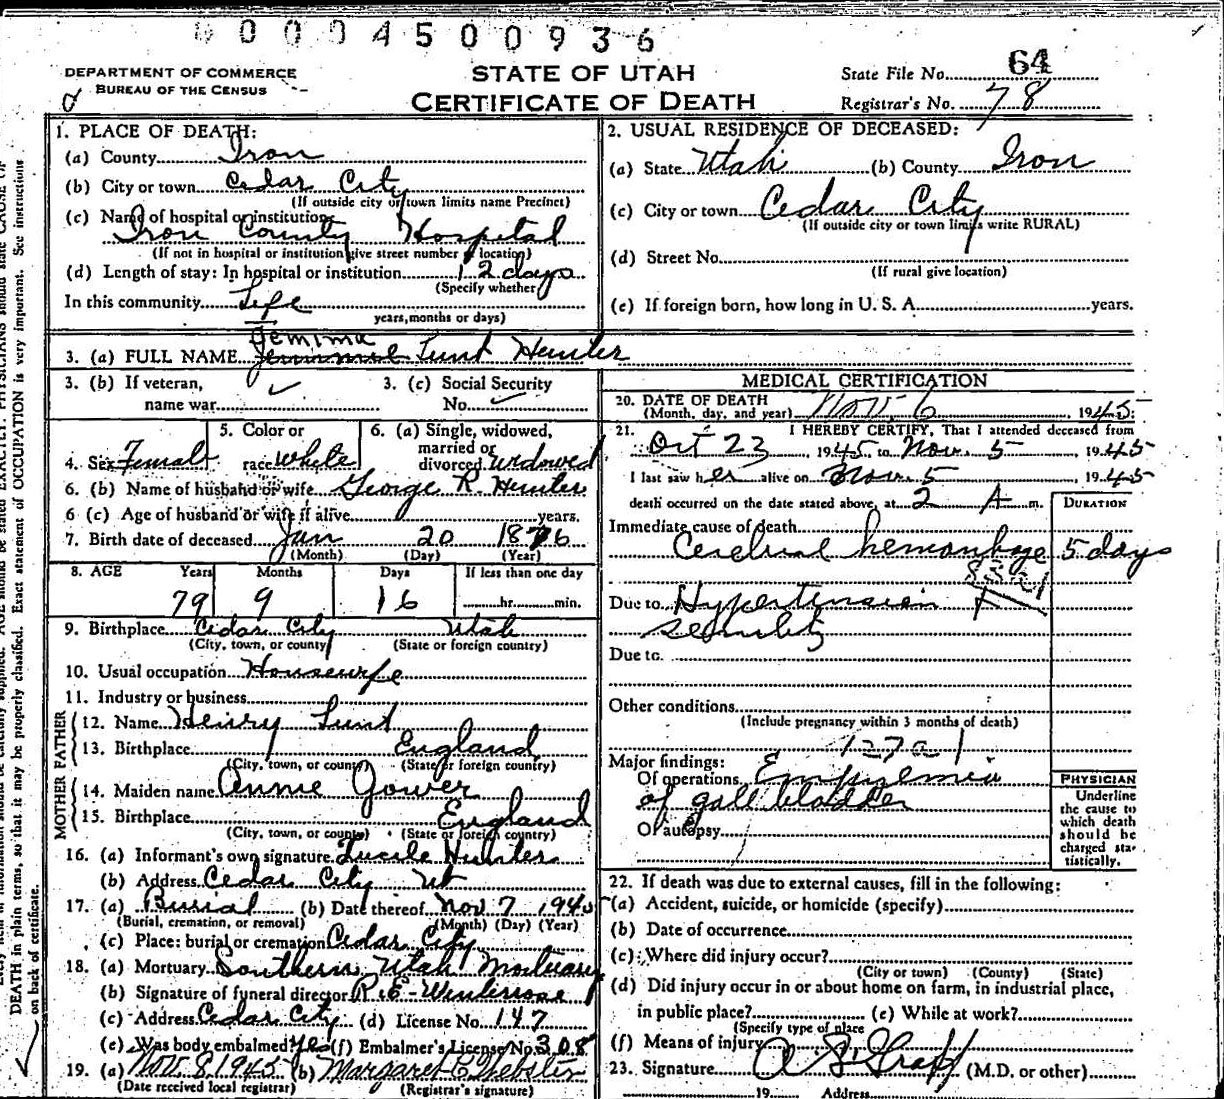 00004500936
DEPARTMENT OF COMMERCE
BUREAU OF THE CENSUS
STATE OF UTAH
CERTIFICATE OF DEATH
State File No. 64
Registrar's No. 78
1. PLACE OF DEATH:
(a) County Iron
(b) City or town Cedar City
(If outside city or town limits name Precinct)
(c) Name of hospital or institution:
Iron County Hospital
(If not in hospital or institution give street number or location)
(d) Length of stay: In hospital or institution 12 days
(Specify whether
In this community Life
years, months or days)
2. USUAL RESIDENCE OF DECEASED:
(a) State Utah (b) County Iron
(c) City or town Cedar City
(If outside city or town limits write RURAL)
(d) Street No.
(If rural give location)
(e) If foreign born, how long in U. S. A. years.
Jemima
3. (a) FULL NAME Lunt Hunter
3. (b) If veteran,
name war
3. (c) Social Security
No.
4. Sex Female
5. Color or
race White
6. (a) Single, widowed,
married or
divorced widowed
6. (b) Name of husband or wife George R Hunter
6 (c) Age of husband or wife if alive years.
7. Birth date of deceased Jan 20 1876
(Month) (Day) (Year)
8. AGE Years Months Days If less than one day
79 9 16 hr. min.
9. Birthplace Cedar City Utah
(City, town, or county) (State or foreign country)
10. Usual occupation Housewife
11. Industry or business
FATHER
12. Name Henry Lunt
13. Birthplace England
(City, town, or county) (State or foreign country)
MOTHER
14. Maiden name Annie Gower
15. Birthplace England
(City, town, or county) (State or foreign country)
16. (a) Informant's own signature Lucile Hunter
(b) Address Cedar City Ut
17. (a) Burial (b) Date thereof Nov 7 1945
(Burial, cremation, or removal) (Month) (Day) (Year)
(c) Place: burial or cremation Cedar City
18. (a) Mortuary Southern Utah Mortuary
(b) Signature of funeral director R. E.
(c) Address Cedar City (d) License No. 147
(e) Was body embalmed? Yes (f) Embalmer's License No. 308
19. (a) Nov. 8, 1945 (b) Margaret C Webster
(Date received local registrar) (Registrar's signature)
MEDICAL CERTIFICATION
20. DATE OF DEATH
(Month, day, and year) Nov. 6 1945
21. I HEREBY CERTIFY, That I attended deceased from
Oct 23, 1945, to Nov. 5, 1945
I last saw her alive on Nov. 5, 1945
death occurred on the date stated above, at 2 A m.
DURATION
Immediate cause of death
Cerebral hemorrhage 5 days
Due to Hypertension
senility
Due to
Other conditions
(Include pregnancy within 3 months of death)
127a1
Major findings:
Of operations Empyemia
of gall bladder
Of autopsy
PHYSICIAN
Underline
the cause to
which death
should be
charged sta-
tistically.
22. If death was due to external causes, fill in the following:
(a) Accident, suicide, or homicide (specify)
(b) Date of occurrence
(c) Where did injury occur?
(City or town) (County) (State)
(d) Did injury occur in or about home on farm, in industrial place,
in public place? (e) While at work?
(Specify type of place
(f) Means of injury
23. Signature A L Graff (M.D. or other)
19 Address
DEATH in plain terms, so that it may be properly classified. Exact statement of OCCUPATION is very important. See instructions
on back of certificate.